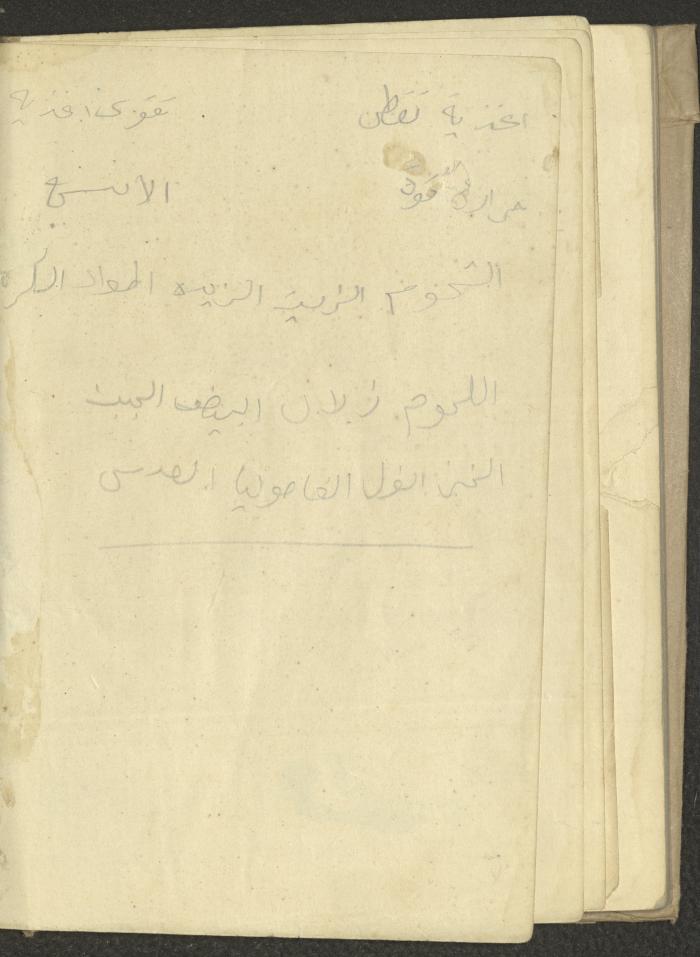 اغذية تعطي تقوي اغذية
حرارة وقوة الانسج
الشحوم الزيت الزبده المواد السكر
اللحوم زلال البيض الجبن
الخبز الفول الفاصوليا العدس